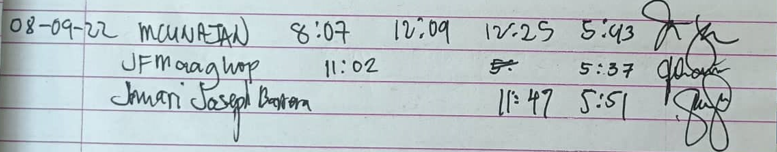 08-09-22 MCUNATAN 8:07 12:09 12:25 5:43
JFmaaghop 11:02 5:37
Jmari Joseph Barrera 11:47 5:51